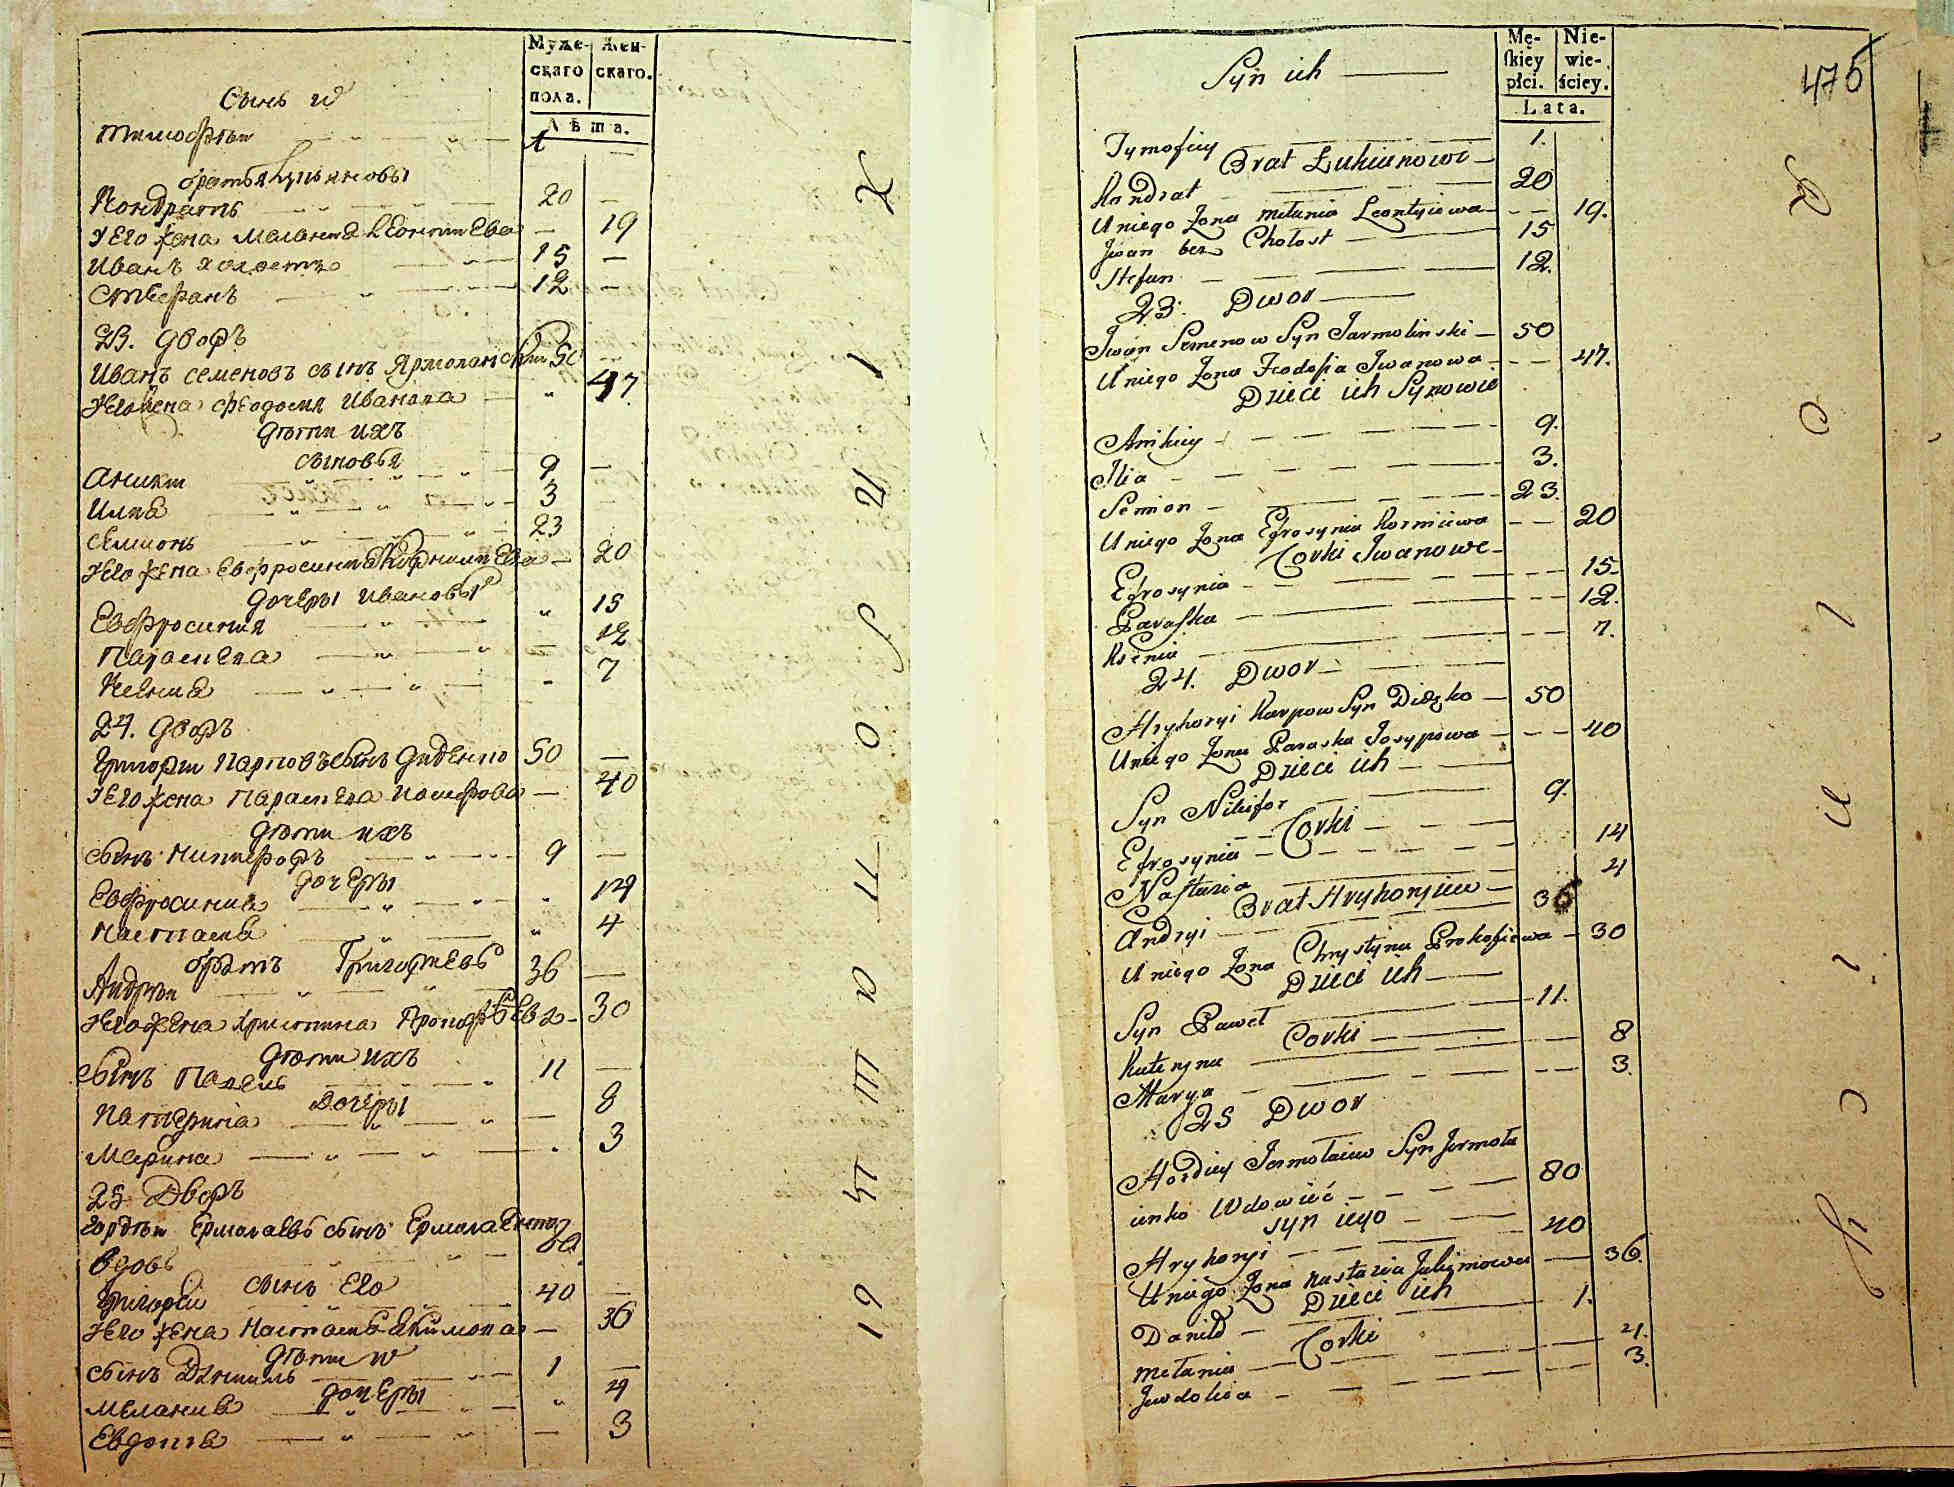 Муже-
скаго
пола.
Жен-
скаго.
Лѣта.
Сынъ
Тимофѣи 1
братья Лукьяновы
Кондратъ 20 —
У Его жена Мелания Леонтиева — 19
Иванъ холостъ 15 —
Стефанъ 12 —
23. дворъ
Иванъ Семеновъ сынъ Ярмолински 50
У Его жена Феодосия Иванова 47
дѣти ихъ
сыновья
Аники 9 —
Илиа 3
Семионъ 23
У Его жена Евфросиния Корниева — 20
дочеры Ивановы
Евфросиния 15
Параскева 12
Ксениа 7
24. дворъ
Григори Карповъ сынъ Диденко 50 —
У Его жена Параскева Иосифова — 40
дѣти ихъ
сынъ Никифоръ 9 —
дочеры
Евфросиниа 14
Настасиа 4
братъ Григориевъ
Андреи 36 —
У Его жена Христина Прокофьева — 30
дѣти ихъ
сынъ Павелъ 11 —
дочеры
Катерина — 8
Марина 3
25 Дворъ
Гордѣи Ермолаевъ сынъ Ермолаенко
вдовъ 80
сынъ Его
Григорей 40 —
У Его жена Настасиа Акимова — 36
дѣти
сынъ Даниилъ 1 —
дочеры
Меланиа 4
Евдокиа — 3
Mę-
skiey
płci.
Nie-
wie-
ściey.
Lata.
475
Syn ich
Tymofiey 1.
Brat Łukianowi
Kondrat 20
U niego Żona Mełania Leontyiewa 19.
Jwan bez Chołost 15
Stefan 12.
23. Dwor
Jwan Semenow Syn Jarmolinski 50
U niego Żona Feodosia Jwanowa 47.
Dzieci ich Synowie
Anikiey 9.
Ilia 3.
Semion 23.
U niego Żona Efrosynia Korniiewa 20
Corki Jwanowe
Efrosynia 15
Paraska 12.
Ksenia 7.
24. Dwor
Hryhoryi Karpow Syn Didęko 50
U niego Żona Paraska Josypowa 40
Dzieci ich
Syn Nikifor 9.
Corki
Efrosynia 14
Nastazia 4
Brat Hryhoryiew
Andryi 36
U niego Żona Chrystyna Prokofiewa 30
Dzieci ich
Syn Paweł 11.
Corki
Kateryna 8
Marya 3.
25 Dwor
Hordiey Jermołaiew Syn Jermoła
ienko Wdowieć 80
syn iego
Hryhoryi 40
U niego Żona Nastazia Jakimowa 36.
Dzieci ich
Daniło 1.
Corki
Mełania 4.
Jewdokia 3.